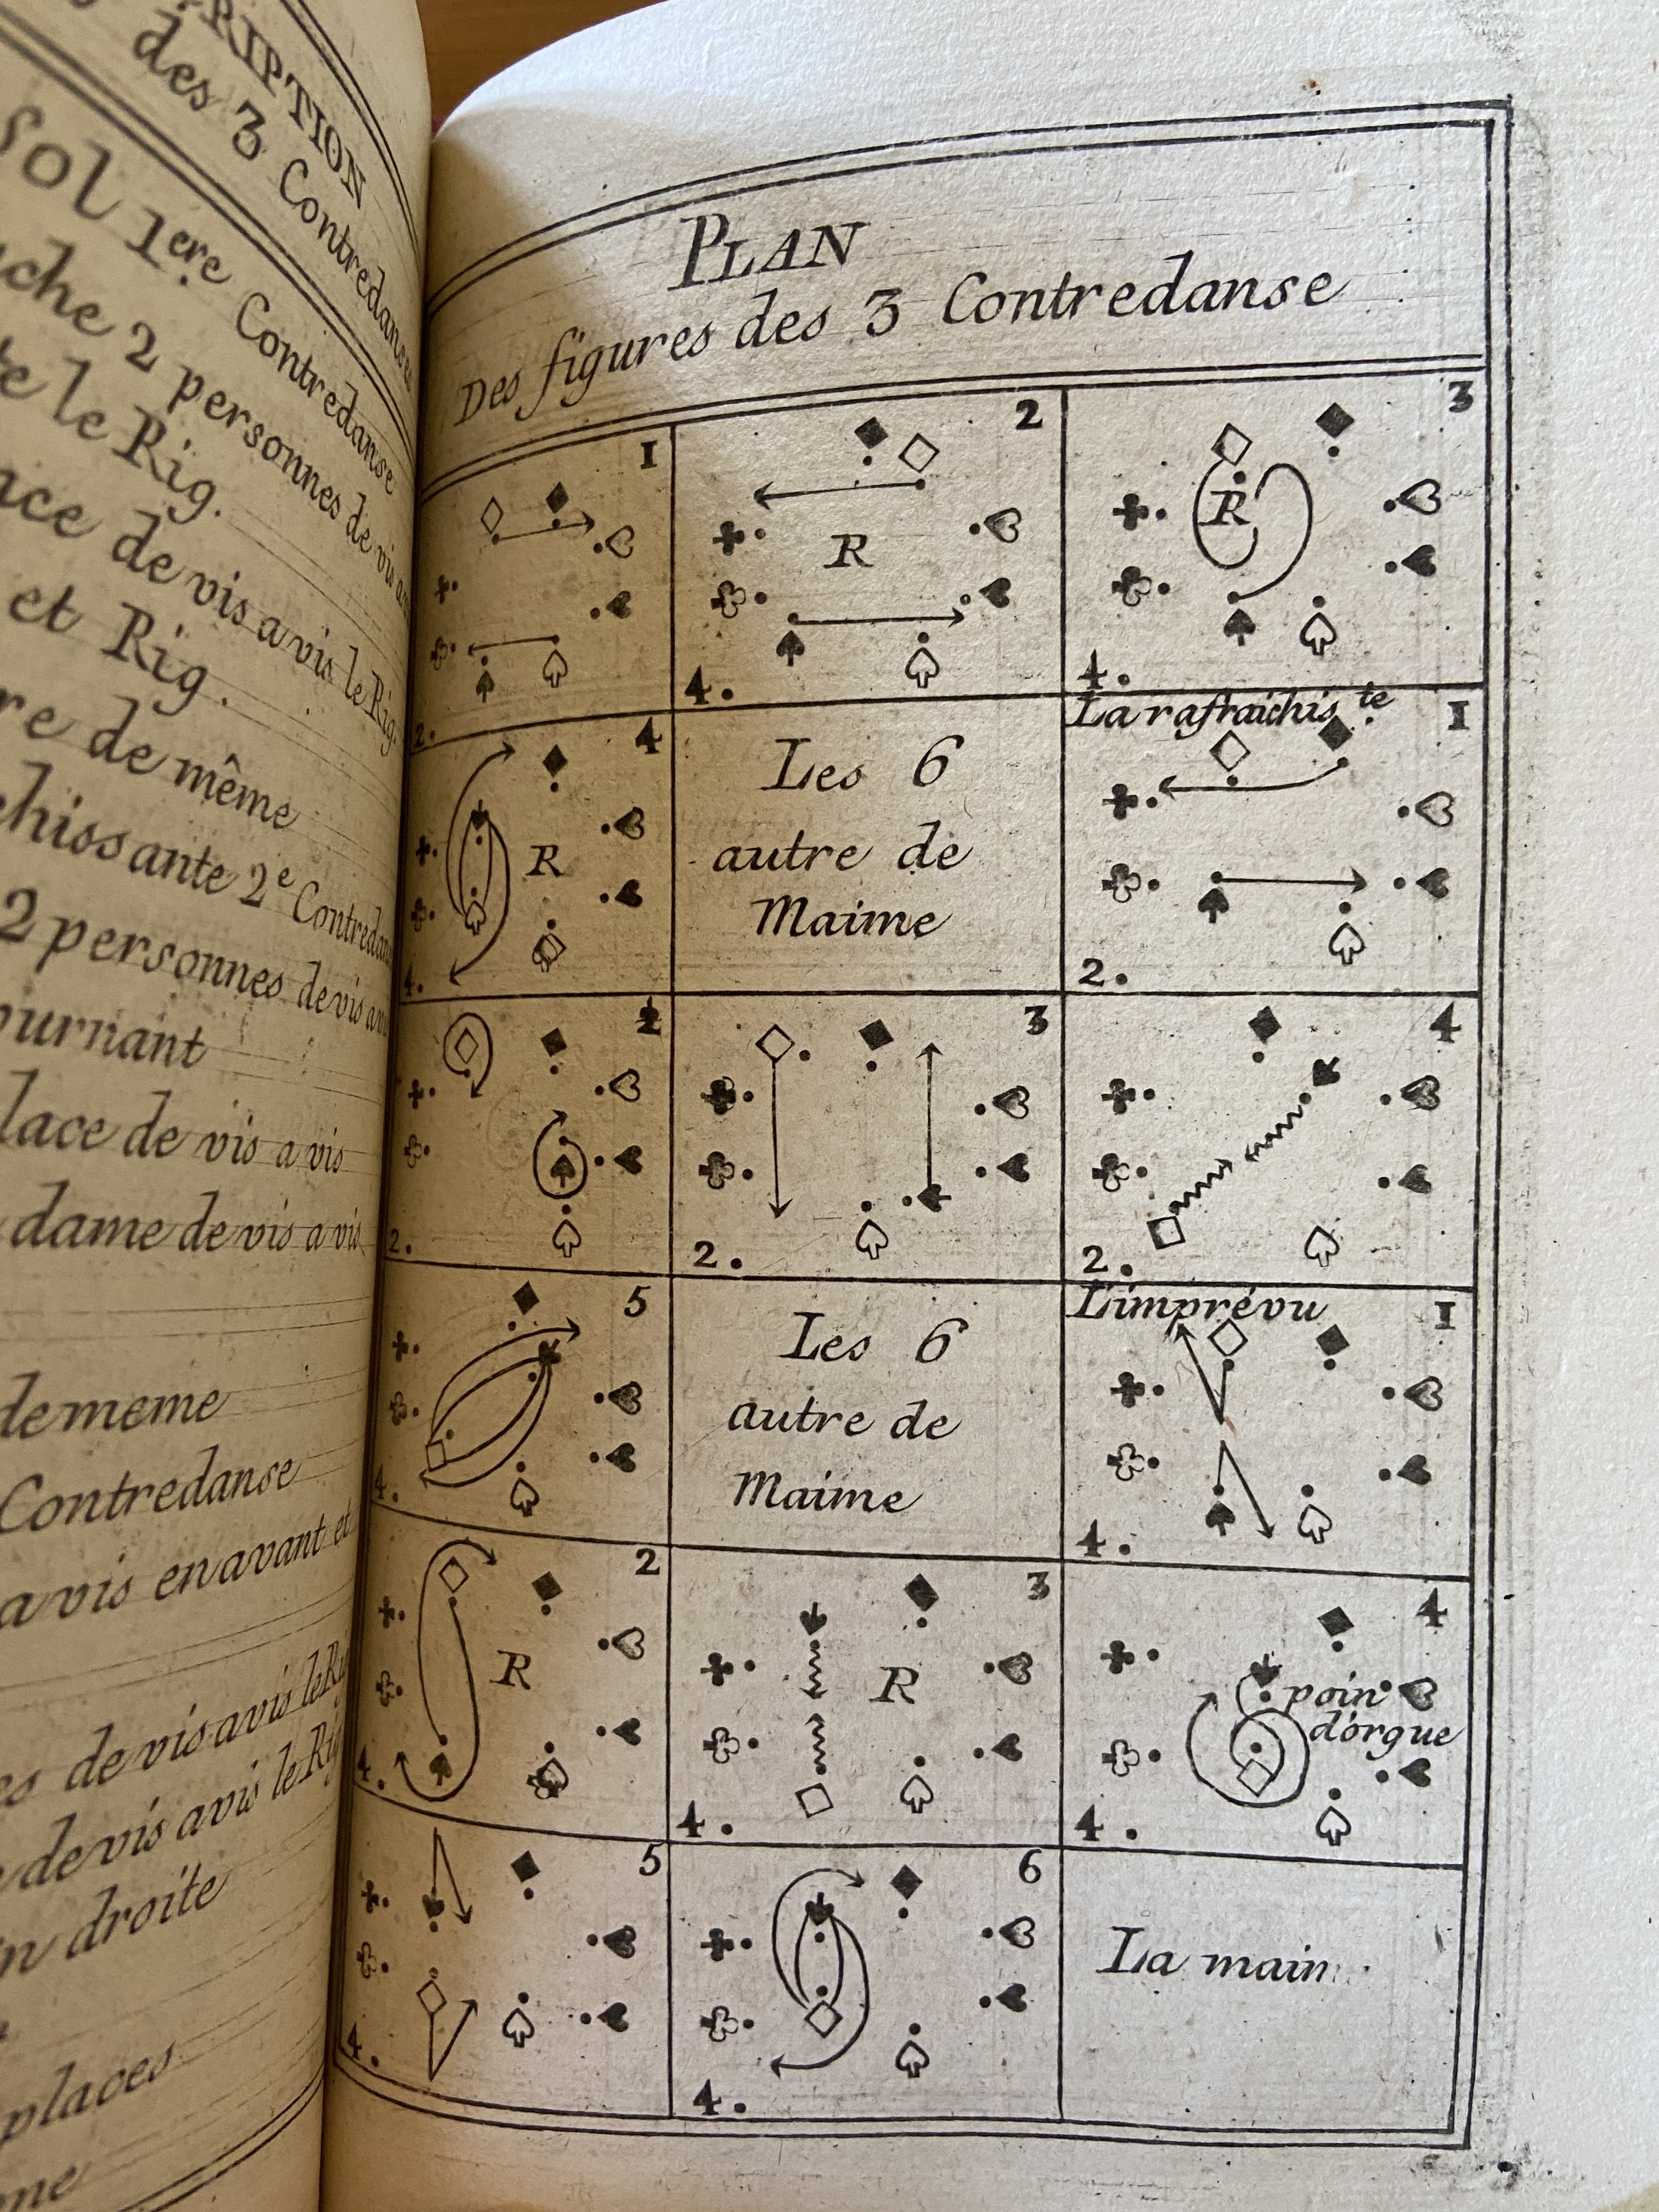 des 3 Contredanses
Sol 1ere Contredanse
2 personnes de vis a vis
le Rig.
de vis a vis le Rig.
et Rig.
de même
2e Contredanse
2 personnes de vis a vis
de vis a vis
dame de vis a vis
de meme
Contredanse
a vis en avant et
de vis a vis le Rig
de vis a vis le Rig
droite
places
PLAN
Des figures des 3 Contredanse
1
2.
2
R
4.
3
R
4.
4
R
4.
Les 6
autre de
Maime
La rafraichis.te
1
2.
2.
3
2.
4
2.
5
4.
Les 6
autre de
Maime
L'imprévu
1
4.
2
R
4.
3
R
4.
4
poin
d'orgue
4.
5
4.
6
4.
La main